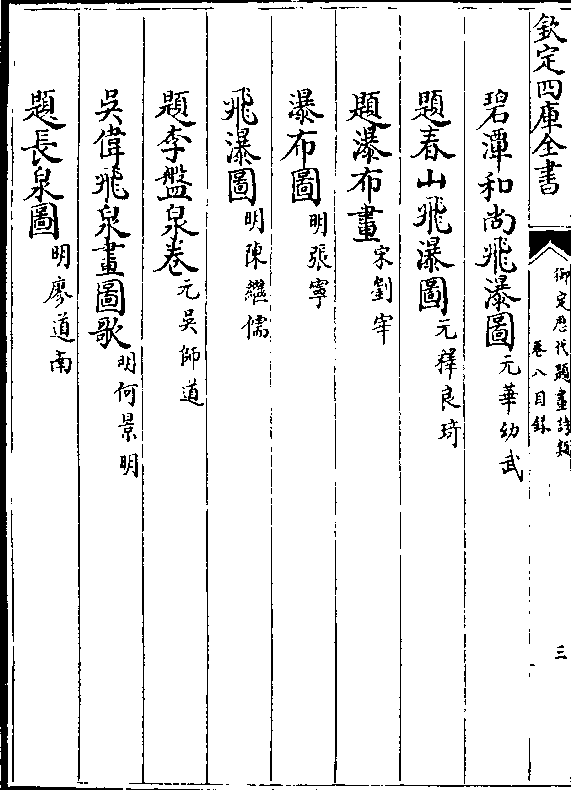 欽定四庫全書
御定歷代題畫詩類
卷八目錄
三
碧潭和尚飛瀑圖 元華幼武
題春山飛瀑圖 元釋良琦
題瀑布畫 宋劉宰
瀑布圖 明張寧
飛瀑圖 明陳繼儒
題李盤泉卷 元吳師道
吳偉飛泉畫圖歌 明何景明
題長泉圖 明廖道南